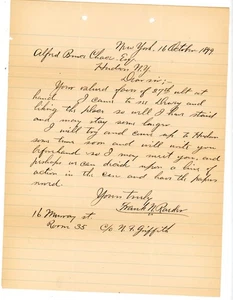 New York, 16 October 1899
Alfred Bruce Chace Esq
Hudson, N.Y.
Dear sir:-
Your valued favor of 27th ult at
hand. I came to and
liking the place so well I have staid
and may stay some longer.
I will try and come up to Hudson
some time soon and will write you
beforehand so I may meet you, and
perhaps we can decide upon a line of
action in the case and have the papers
Yours truly
Frank N.
16 Murray st. c/o N. F. Griffith
Room 35